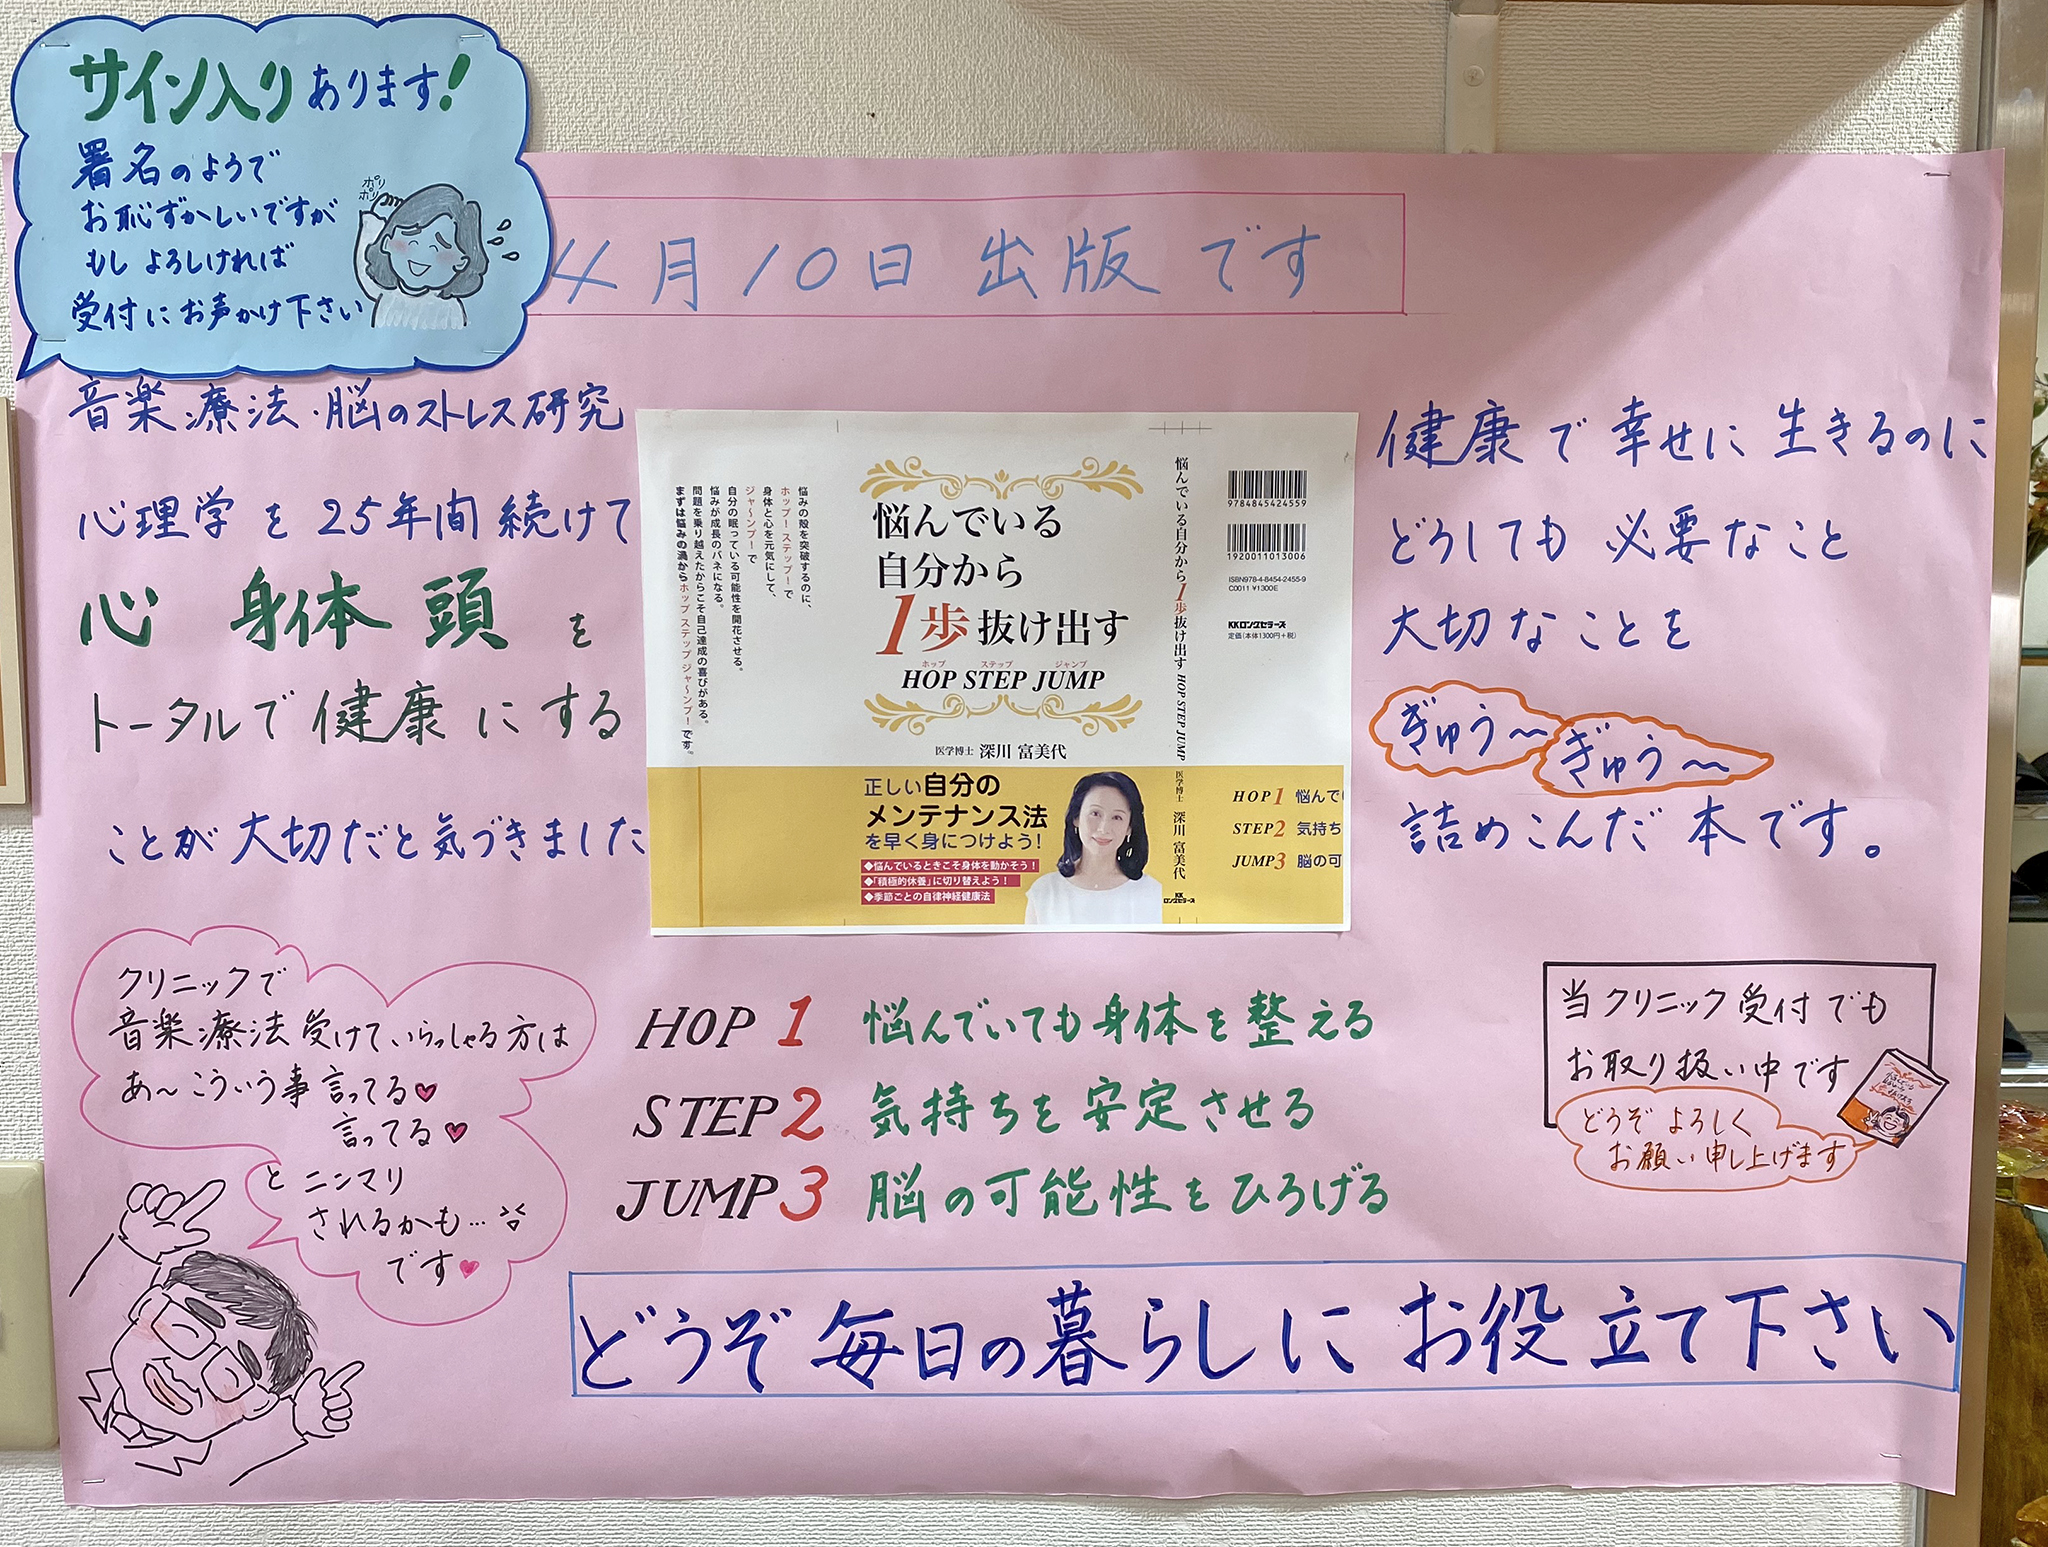 サイン入りあります!
署名のようで
お恥ずかしいですが
もしよろしければ
受付にお声かけ下さい
ポリ
ポリ
4月10日出版です
音楽療法・脳のストレス研究
心理学を25年間続けて
心 身体 頭を
トータルで健康にする
ことが大切だと気づきました
悩みの殻を突破するのに、
ホップ!ステップ!で
身体と心を元気にして、
ジャ〜ンプ!で
自分の眠っている可能性を開花させる。
悩みが成長のバネになる。
問題を乗り越えたからこそ自己達成の喜びがある。
まずは悩みの渦からホップ ステップ ジャ〜ンプ!です。
悩んでいる
自分から
1歩抜け出す
ホップ ステップ ジャンプ
HOP STEP JUMP
医学博士 深川 富美代
正しい自分の
メンテナンス法
を早く身につけよう!
◆悩んでいるときこそ身体を動かそう!
◆「積極的休養」に切り替えよう!
◆季節ごとの自律神経健康法
悩んでいる自分から1歩抜け出す HOP STEP JUMP 医学博士 深川 富美代
KK
ロングセラーズ
9784845424559
1920011013006
ISBN978-4-8454-2455-9
C0011 ¥1300E
KKロングセラーズ
定価(本体1300円+税)
HOP1 悩んで
STEP2 気持ち
JUMP3 脳の可
健康で幸せに生きるのに
どうしても必要なこと
大切なことを
ぎゅう〜
ぎゅう〜
詰めこんだ本です。
クリニックで
音楽療法受けていらっしゃる方は
あ〜こういう事言ってる♥
言ってる♥
とニンマリ
されるかも…
です♥
HOP 1 悩んでいても身体を整える
STEP 2 気持ちを安定させる
JUMP 3 脳の可能性をひろげる
当クリニック受付でも
お取り扱い中です
どうぞよろしく
お願い申し上げます
どうぞ毎日の暮らしにお役立て下さい